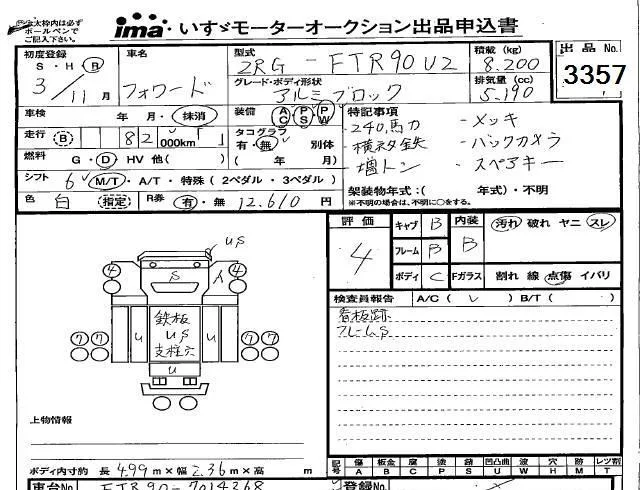 太枠内は必ず
ボールペンで
ご記入下さい。
ima いすゞモーターオークション出品申込書
初度登録 車名 型式 積載 (kg) 出品 No.
S・H・R 2RG - FTR90U2 8.200
3/11月 フォワード グレード・ボディ形状 排気量 (cc) 3357
アルミブロック 5.190
車検 年 月・抹消 装備 AC PS PW 特記事項
走行 (R) 82,000km「 」 タコグラフ 有・無 別体 ( 年 月)
-240馬力 -メッキ
-横ネタ鉄 -バックカメラ
-増トン -スペアキー
燃料 G・D HV 他( )
シフト 6 M/T・A/T・特殊(2ペダル・3ペダル) 架装物年式:( 年式)・不明
※不明の場合は、不明に○をする。
色 白 (指定) R券 有・無 12.610 円
評価 キャブ B 内装 汚れ 破れ ヤニ スレ
4 フレーム B B
ボディ C Fガラス 割れ 線 点傷 イバリ
検査員報告 A/C( レ ) B/T( )
看板跡
フレームS
US
4 4
S
人
鉄板
US
支柱穴
U U
U
7 7 7 7
上物情報
ボディ内寸約 長 499 m×幅 2.36 m×高 m
記号 傷 板金 腐 塗 錆 凹凸曲 波 穴 跡 レツ割
A B C P S U W H M T
車台 FTR90-7014268 登録No.